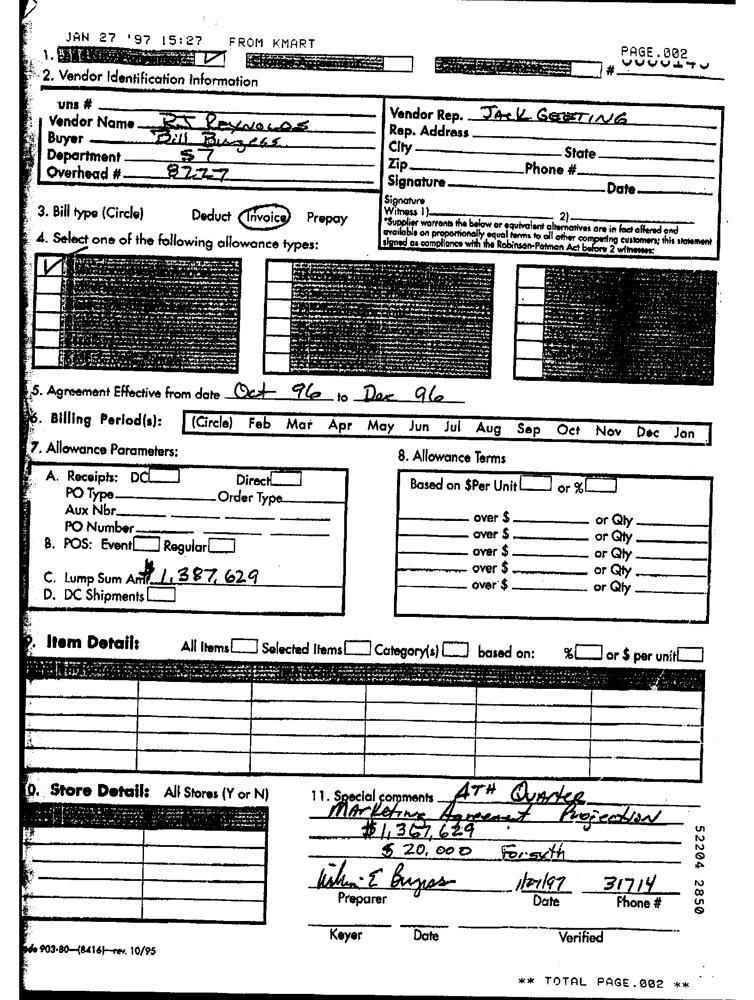 JAN 27 '97 15:27 FROM KMART PAGE.002
1. #
2. Vendor Identification Information
uns #
Vendor Name RJ REYNOLDS
Buyer Bill Burgess
Department 57
Overhead # 8227
Vendor Rep. JACK GEETING
Rep. Address
City State
Zip Phone #
Signature Date
Signature
Witness 1) 2)
"Supplier warrants the below or equivalent alternatives are in fact offered and
available on proportionally equal terms to all other competing customers; this statement
signed as compliance with the Robinson-Patman Act before 2 witnesses:
3. Bill type (Circle) Deduct Invoice Prepay
4. Select one of the following allowance types:
5. Agreement Effective from date Oct 96 to Dec 96
6. Billing Period(s): (Circle) Feb Mar Apr May Jun Jul Aug Sep Oct Nov Dec Jan
7. Allowance Parameters:
A. Receipts: DC Direct
PO Type Order Type
Aux Nbr
PO Number
B. POS: Event Regular
C. Lump Sum Amt $1,387,629
D. DC Shipments
8. Allowance Terms
Based on $Per Unit or %
over $ or Qty
over $ or Qty
over $ or Qty
over $ or Qty
over $ or Qty
9. Item Detail: All Items Selected Items Category(s) based on: % or $ per unit
0. Store Detail: All Stores (Y or N)
11. Special comments 4TH Quarter
Marketing Agreement Projection
$1,367,629
$20,000 Forsyth
Burgess 1/27/97 31714
Preparer Date Phone #
Keyer Date Verified
52204 2850
903-80—(8416)—rev. 10/95
** TOTAL PAGE.002 **